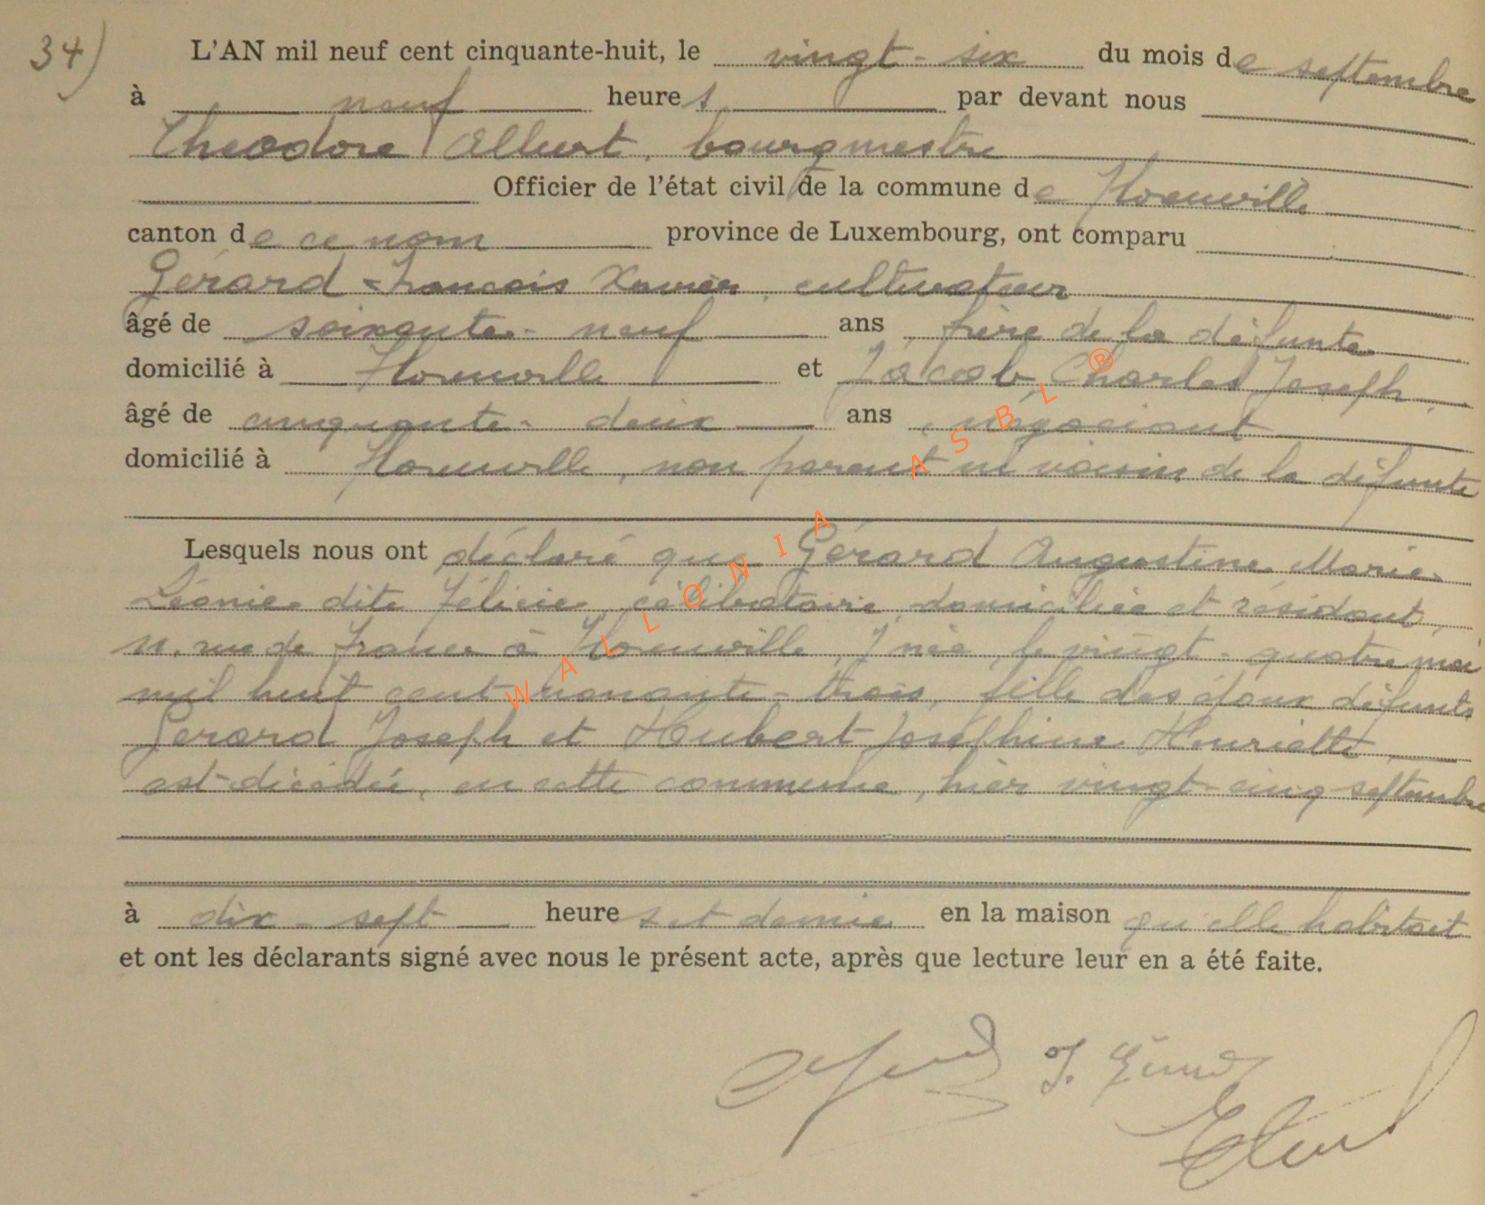 34)
L'AN mil neuf cent cinquante-huit, le vingt-six du mois de septembre
à neuf heures par devant nous
Théodore Albert, bourgmestre
Officier de l'état civil de la commune de Florenville
canton de ce nom province de Luxembourg, ont comparu
Gérard François Xavier, cultivateur
âgé de soixante-neuf ans frère de la défunte
domicilié à Florenville et Jacob Charles Joseph,
âgé de cinquante-deux ans, négociant
domicilié à Florenville, non parent ni voisin de la défunte
Lesquels nous ont déclaré que Gérard Augustine Marie
Léonie dite Félicie, célibataire, domiciliée et résidant,
rue de France à Florenville, née le vingt-quatre mai
mil huit cent nonante-trois, fille des époux défunts
Gérard Joseph et Hubert Joséphine Henriette,
est décédée, en cette commune, hier vingt-cinq septembre
à dix-sept heures et demie en la maison qu'elle habitait
et ont les déclarants signé avec nous le présent acte, après que lecture leur en a été faite.
WALLONIA ASBL ®